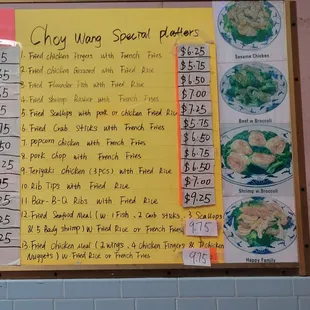 Choy Wang Special platters
1. Fried chicken fingers with French Fries $6.25
2. Fried chicken Gizzard with Fried Rice $5.75
3. Fried Flounder Fish with Fried Rice $6.50
4. Fried Shrimp Basket with French Fries $7.00
5. Fried Scallops with pork or chicken Fried Rice $7.25
6. Fried Crab Sticks with French Fries $5.75
7. popcorn chicken with French Fries $6.50
8. pork chop with French Fries $6.75
9. Teriyaki chicken (3 pcs) with Fried Rice $6.50
10. Rib Tips with Fried Rice $7.00
11. Bar-B-Q Ribs with Fried Rice $9.25
12. Fried Seafood Meal (w 1 Fish, 2 Crab sticks, 3 Scallops
& 5 Baby shrimp) w Fried Rice or French Fries 9.75
13. Fried chicken Meal (2 wings, 4 chicken Fingers &
Nuggets) w Fried Rice or French Fries 9.75
Sesame Chicken
Beef w Broccoli
Shrimp w Broccoli
Happy Family